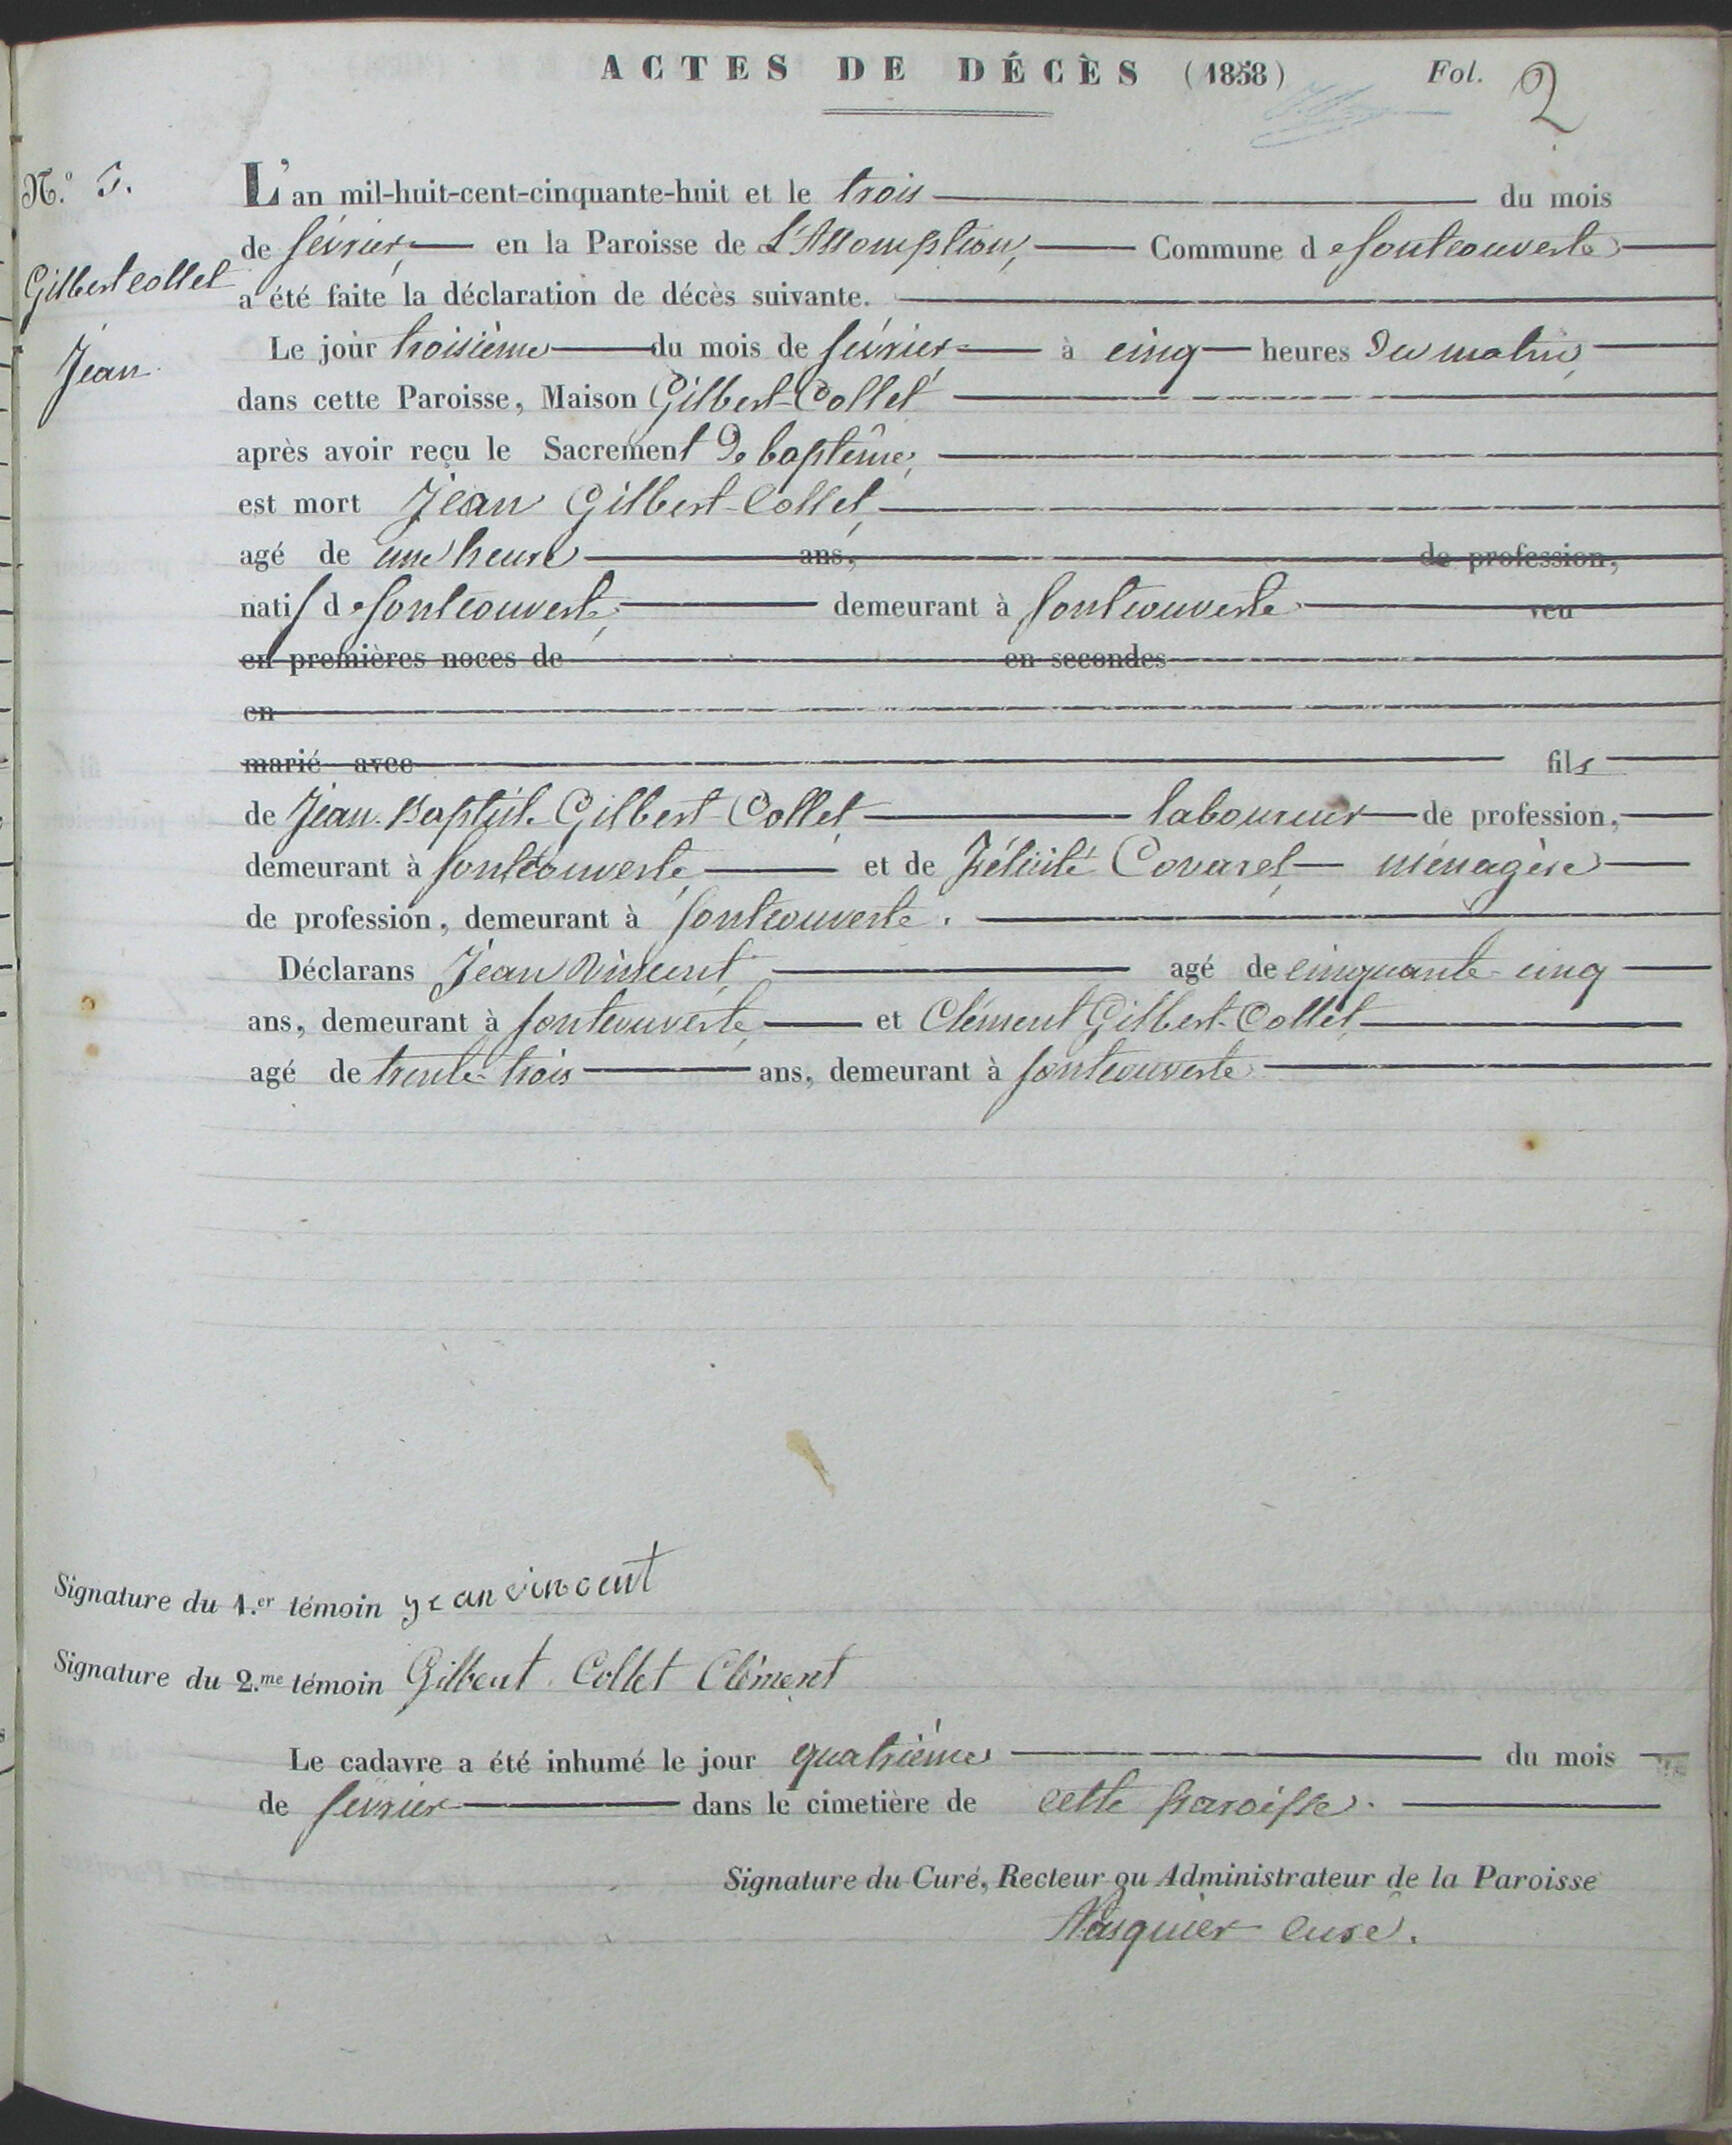 ACTES DE DÉCÈS (1858) Fol. 2
N.º 5.
Gilbert collet
Jean
L'an mil-huit-cent-cinquante-huit et le trois du mois
de février, en la Paroisse de L'Assomption, Commune de fontcouverte
a été faite la déclaration de décès suivante.
Le jour troisième du mois de février à cinq heures du matin,
dans cette Paroisse, Maison Gilbert-Collet
après avoir reçu le Sacrement de baptême,
est mort Jean Gilbert-Collet,
agé de une heure ans, de profession,
natif de fontcouverte, demeurant à fontcouverte veu
en premières noces de en secondes
en
marié avec fils
de Jean-Baptist. Gilbert-Collet, laboureur de profession,
demeurant à fontcouverte, et de Félicité Covarel, ménagère
de profession, demeurant à fontcouverte.
Déclarans Jean Vincent, agé de cinquante-cinq
ans, demeurant à fontcouverte, et Clément Gilbert-Collet,
agé de trente-trois ans, demeurant à fontcouverte
Signature du 1.er témoin yean vincent
Signature du 2.me témoin Gilbert Collet Clément
Le cadavre a été inhumé le jour quatrième du mois
de février dans le cimetière de cette paroisse.
Signature du Curé, Recteur ou Administrateur de la Paroisse
Pasquier curé.